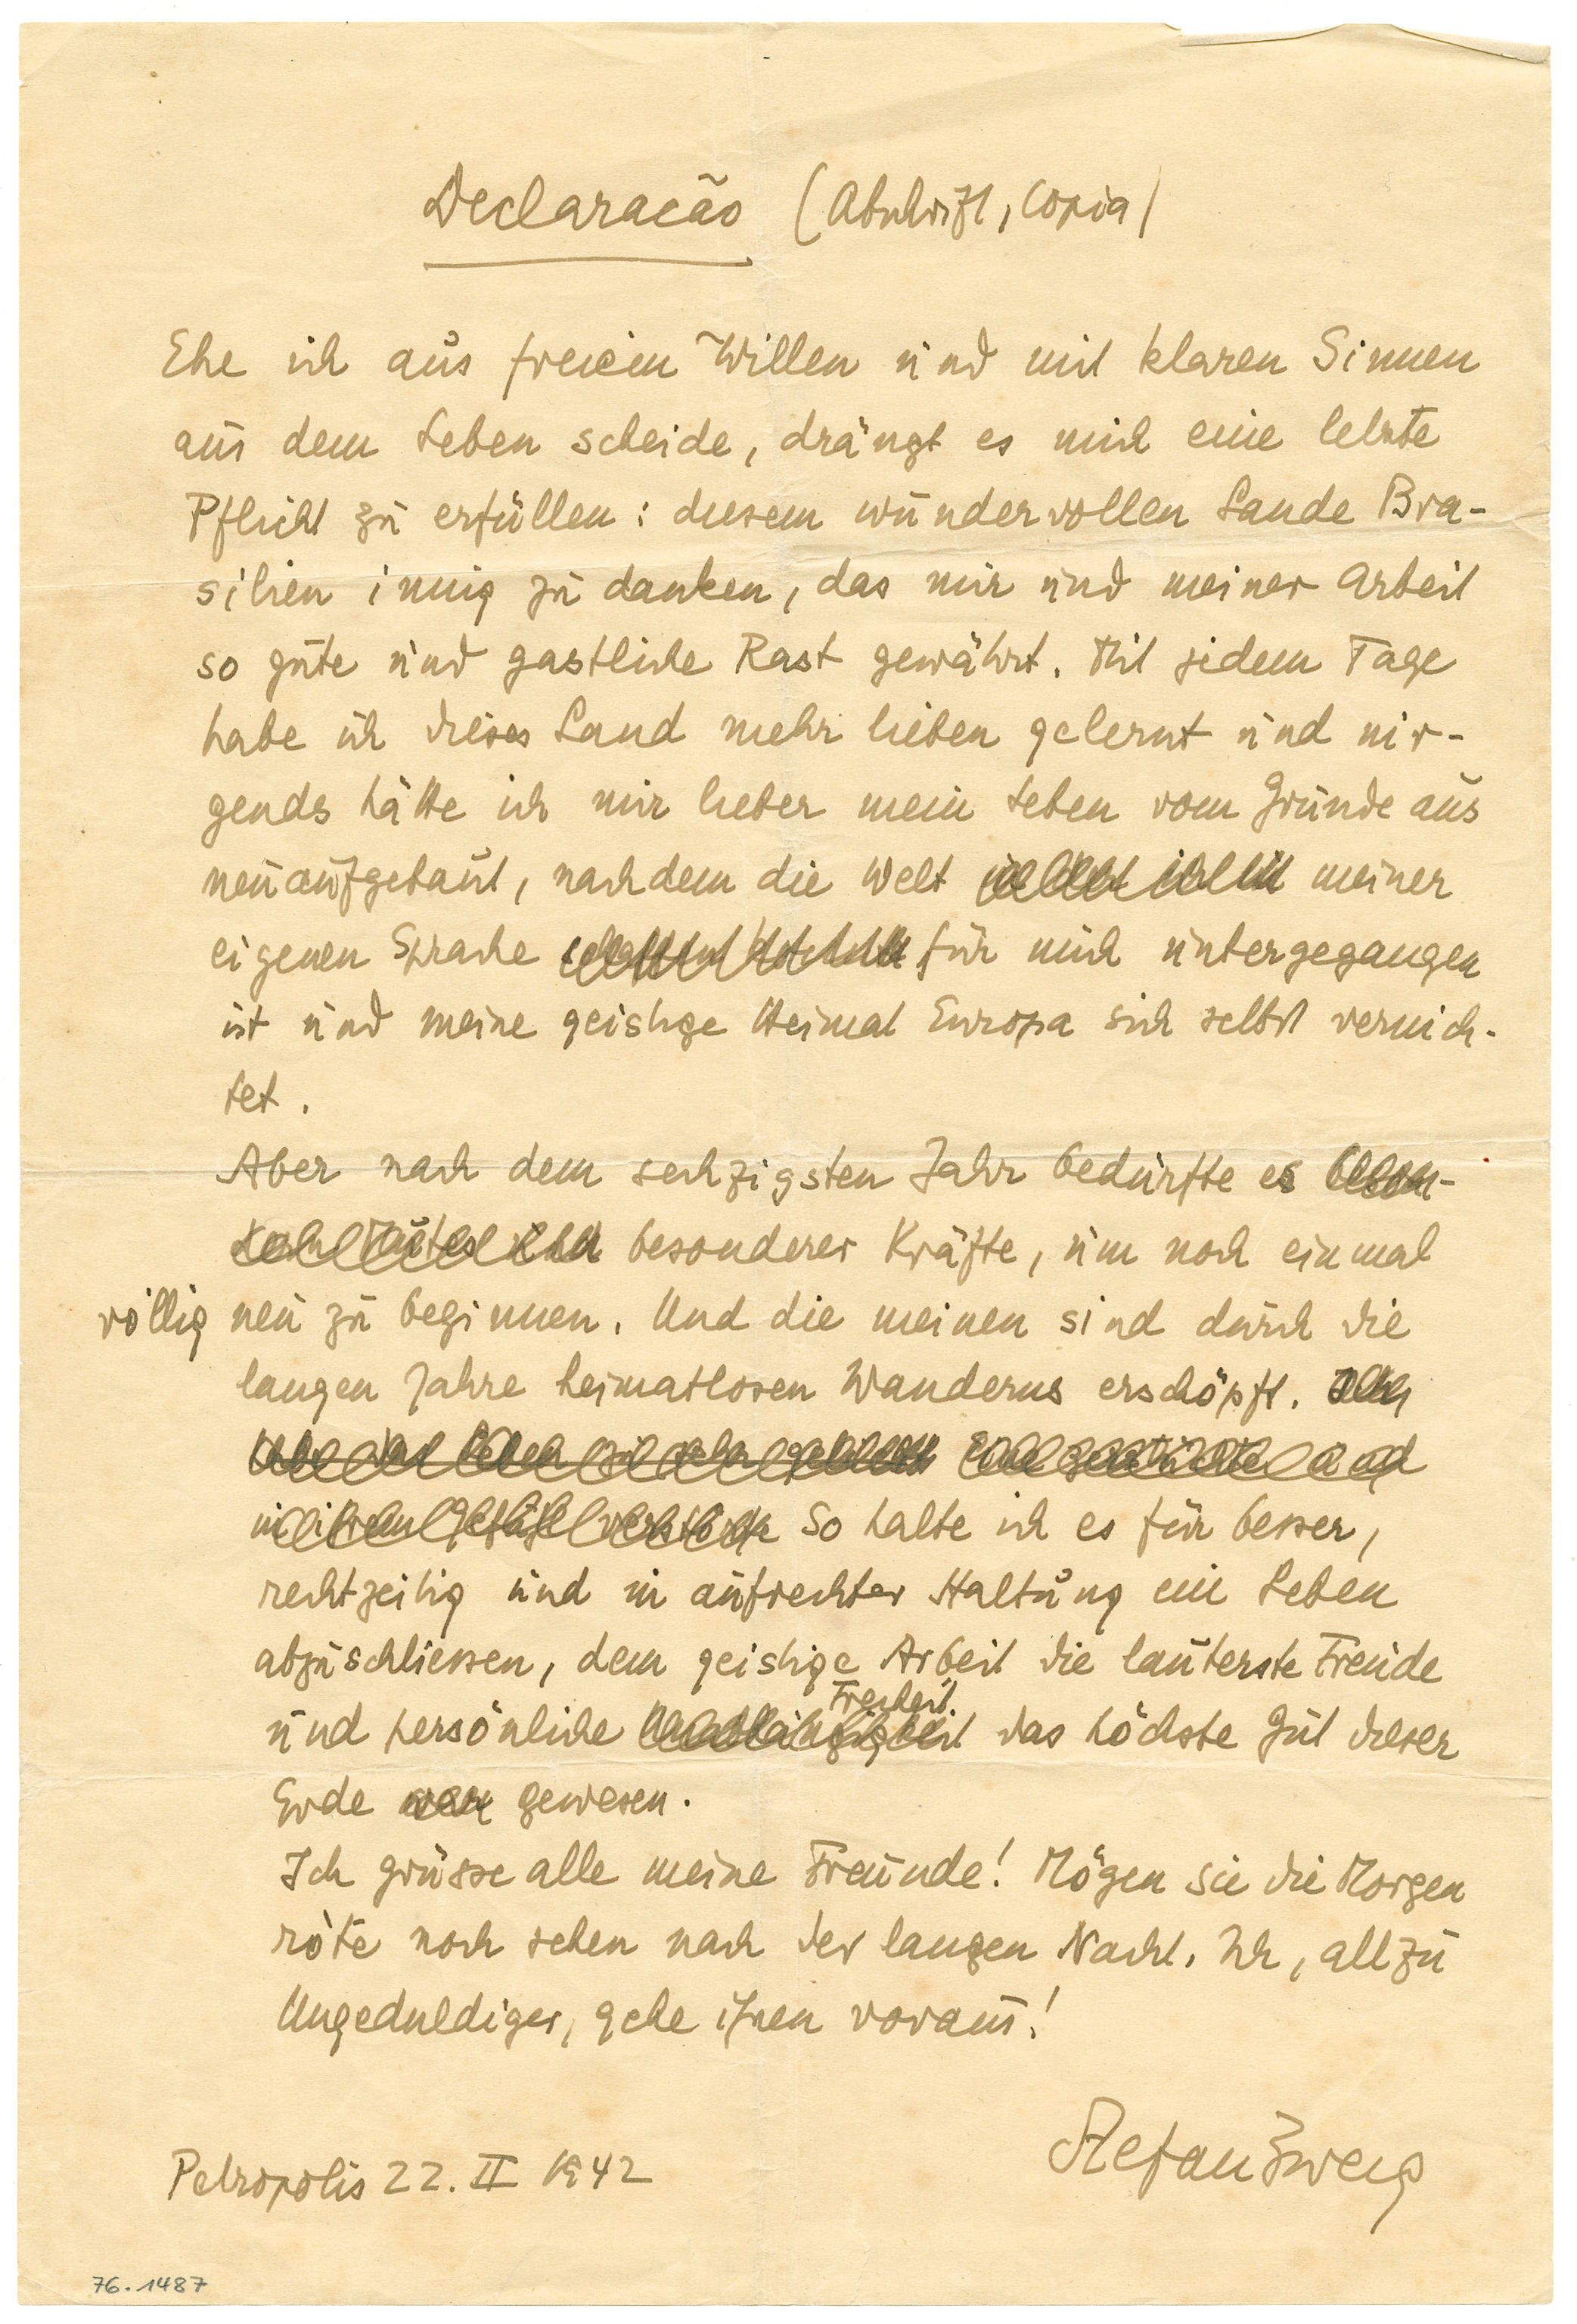 Declaracão (Abschrift, Copia)
Ehe ich aus freiem Willen und mit klaren Sinnen
aus dem Leben scheide, drängt es mich eine letzte
Pflicht zu erfüllen: diesem wundervollen Lande Bra-
silien innig zu danken, das mir und meiner Arbeit
so gute und gastliche Rast gewährt. Mit jedem Tage
habe ich dieses Land mehr lieben gelernt und nir-
gends hätte ich mir lieber mein Leben vom Grunde aus
neu aufgebaut, nachdem die Welt meiner
eigenen Sprache für mich untergegangen
ist und meine geistige Heimat Europa sich selbst vernich-
tet.
Aber nach dem sechzigsten Jahr bedürfte es
besonderer Kräfte, um noch einmal
völlig neu zu beginnen. Und die meinen sind durch die
langen Jahre heimatlosen Wanderns erschöpft.
So halte ich es für besser,
rechtzeitig und in aufrechter Haltung ein Leben
abzuschliessen, dem geistige Arbeit die lauterste Freude
Freiheit
und persönliche das höchste Gut dieser
Erde gewesen.
Ich grüsse alle meine Freunde! Mögen sie die Morgen
röte noch sehen nach der langen Nacht. Ich, allzu
Ungeduldiger, gehe ihnen voraus!
Stefan Zweig
Petropolis 22. II 1942
76.1487